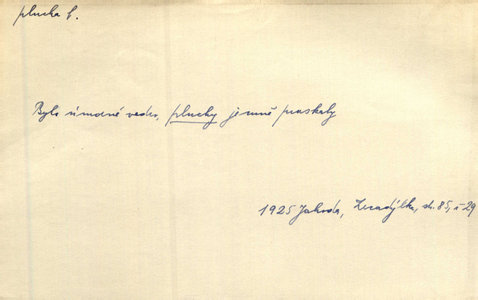 plucha f.
Bylo úmorné vedro, pluchy jemně praskaly
1925 Jahoda, Zrcadýlka, str. 85, ř 29